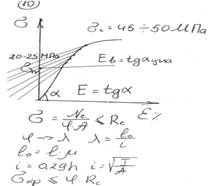 (10)
σ
σc = 45 ÷ 50 МПа
20-25 МПа
Eb = tgα
α
E = tgα
ε%
σ = Nc / φ·A ≤ Rc
φ → λ λ = l₀ / i
l₀ = l μ
i = 0,29h i = √(I/A)
σкр ≤ φ · Rc